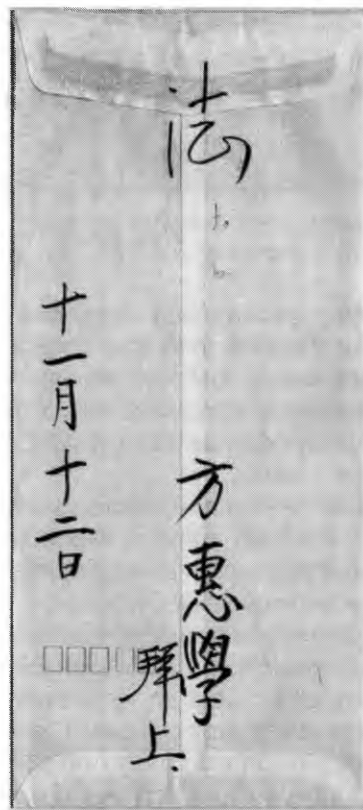 法
方惠學
拜上
十一月十二日